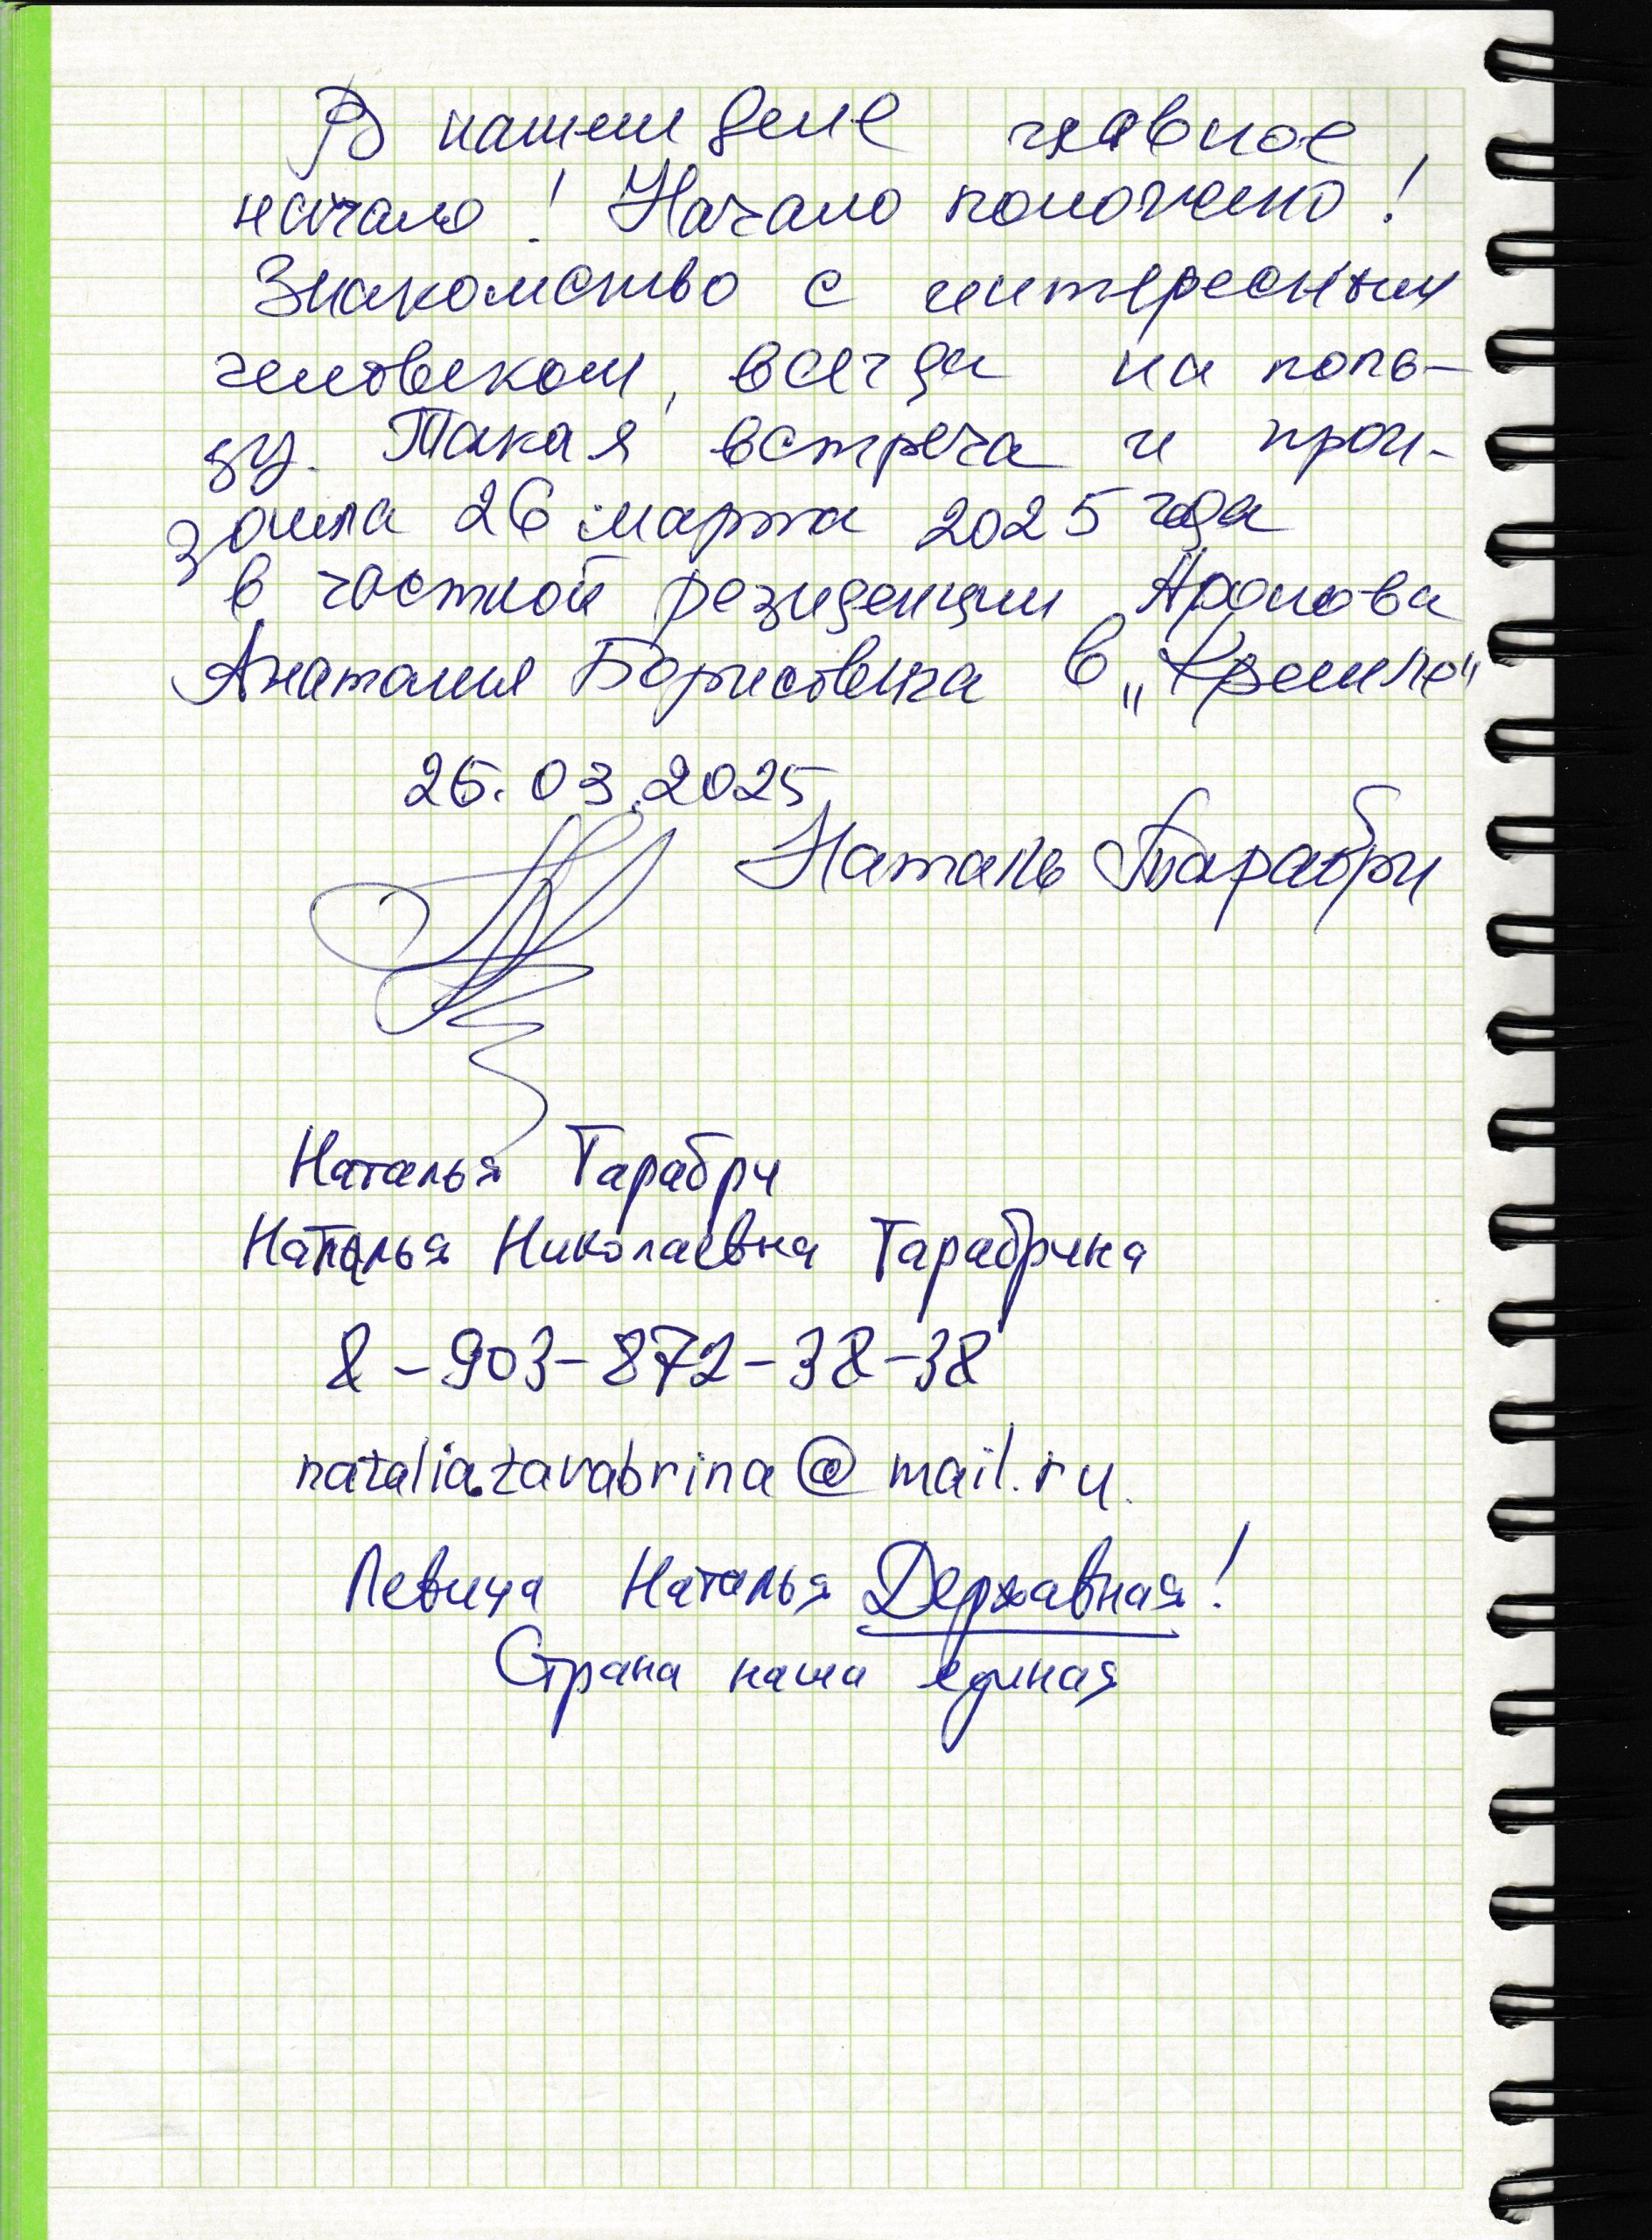 В нашем деле главное
начало! Начало положено!
Знакомство с интересным
человеком, всегда на поль-
зу. Такая встреча и прои-
зошла 26 марта 2025 года
в частной резиденции
Анатолия Борисовича в „Кремле“
26.03.2025
Наталь Тарабри
Наталья Тарабри
Наталья Николаевна Тарабрина
8-903-872-38-38
natalia.tarabrina@mail.ru.
Певица Наталья Державная!
Страна наша единая